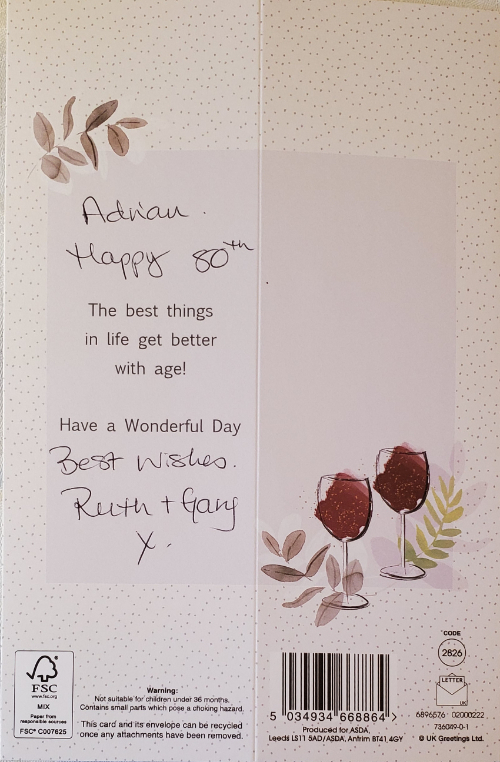 Adrian.
Happy 80th
The best things
in life get better
with age!
Have a Wonderful Day
Best Wishes.
Ruth + Gary
X.
FSC
www.fsc.org
MIX
Paper from
responsible sources
FSC® C007625
Warning:
Not suitable for children under 36 months.
Contains small parts which pose a choking hazard.
This card and its envelope can be recycled
once any attachments have been removed.
5 034934 668864 >
Produced for ASDA,
Leeds LS11 5AD/ASDA, Antrim BT41 4GY
CODE
2826
LETTER
UK
6896576 02000222
736049-0-1
© UK Greetings Ltd.